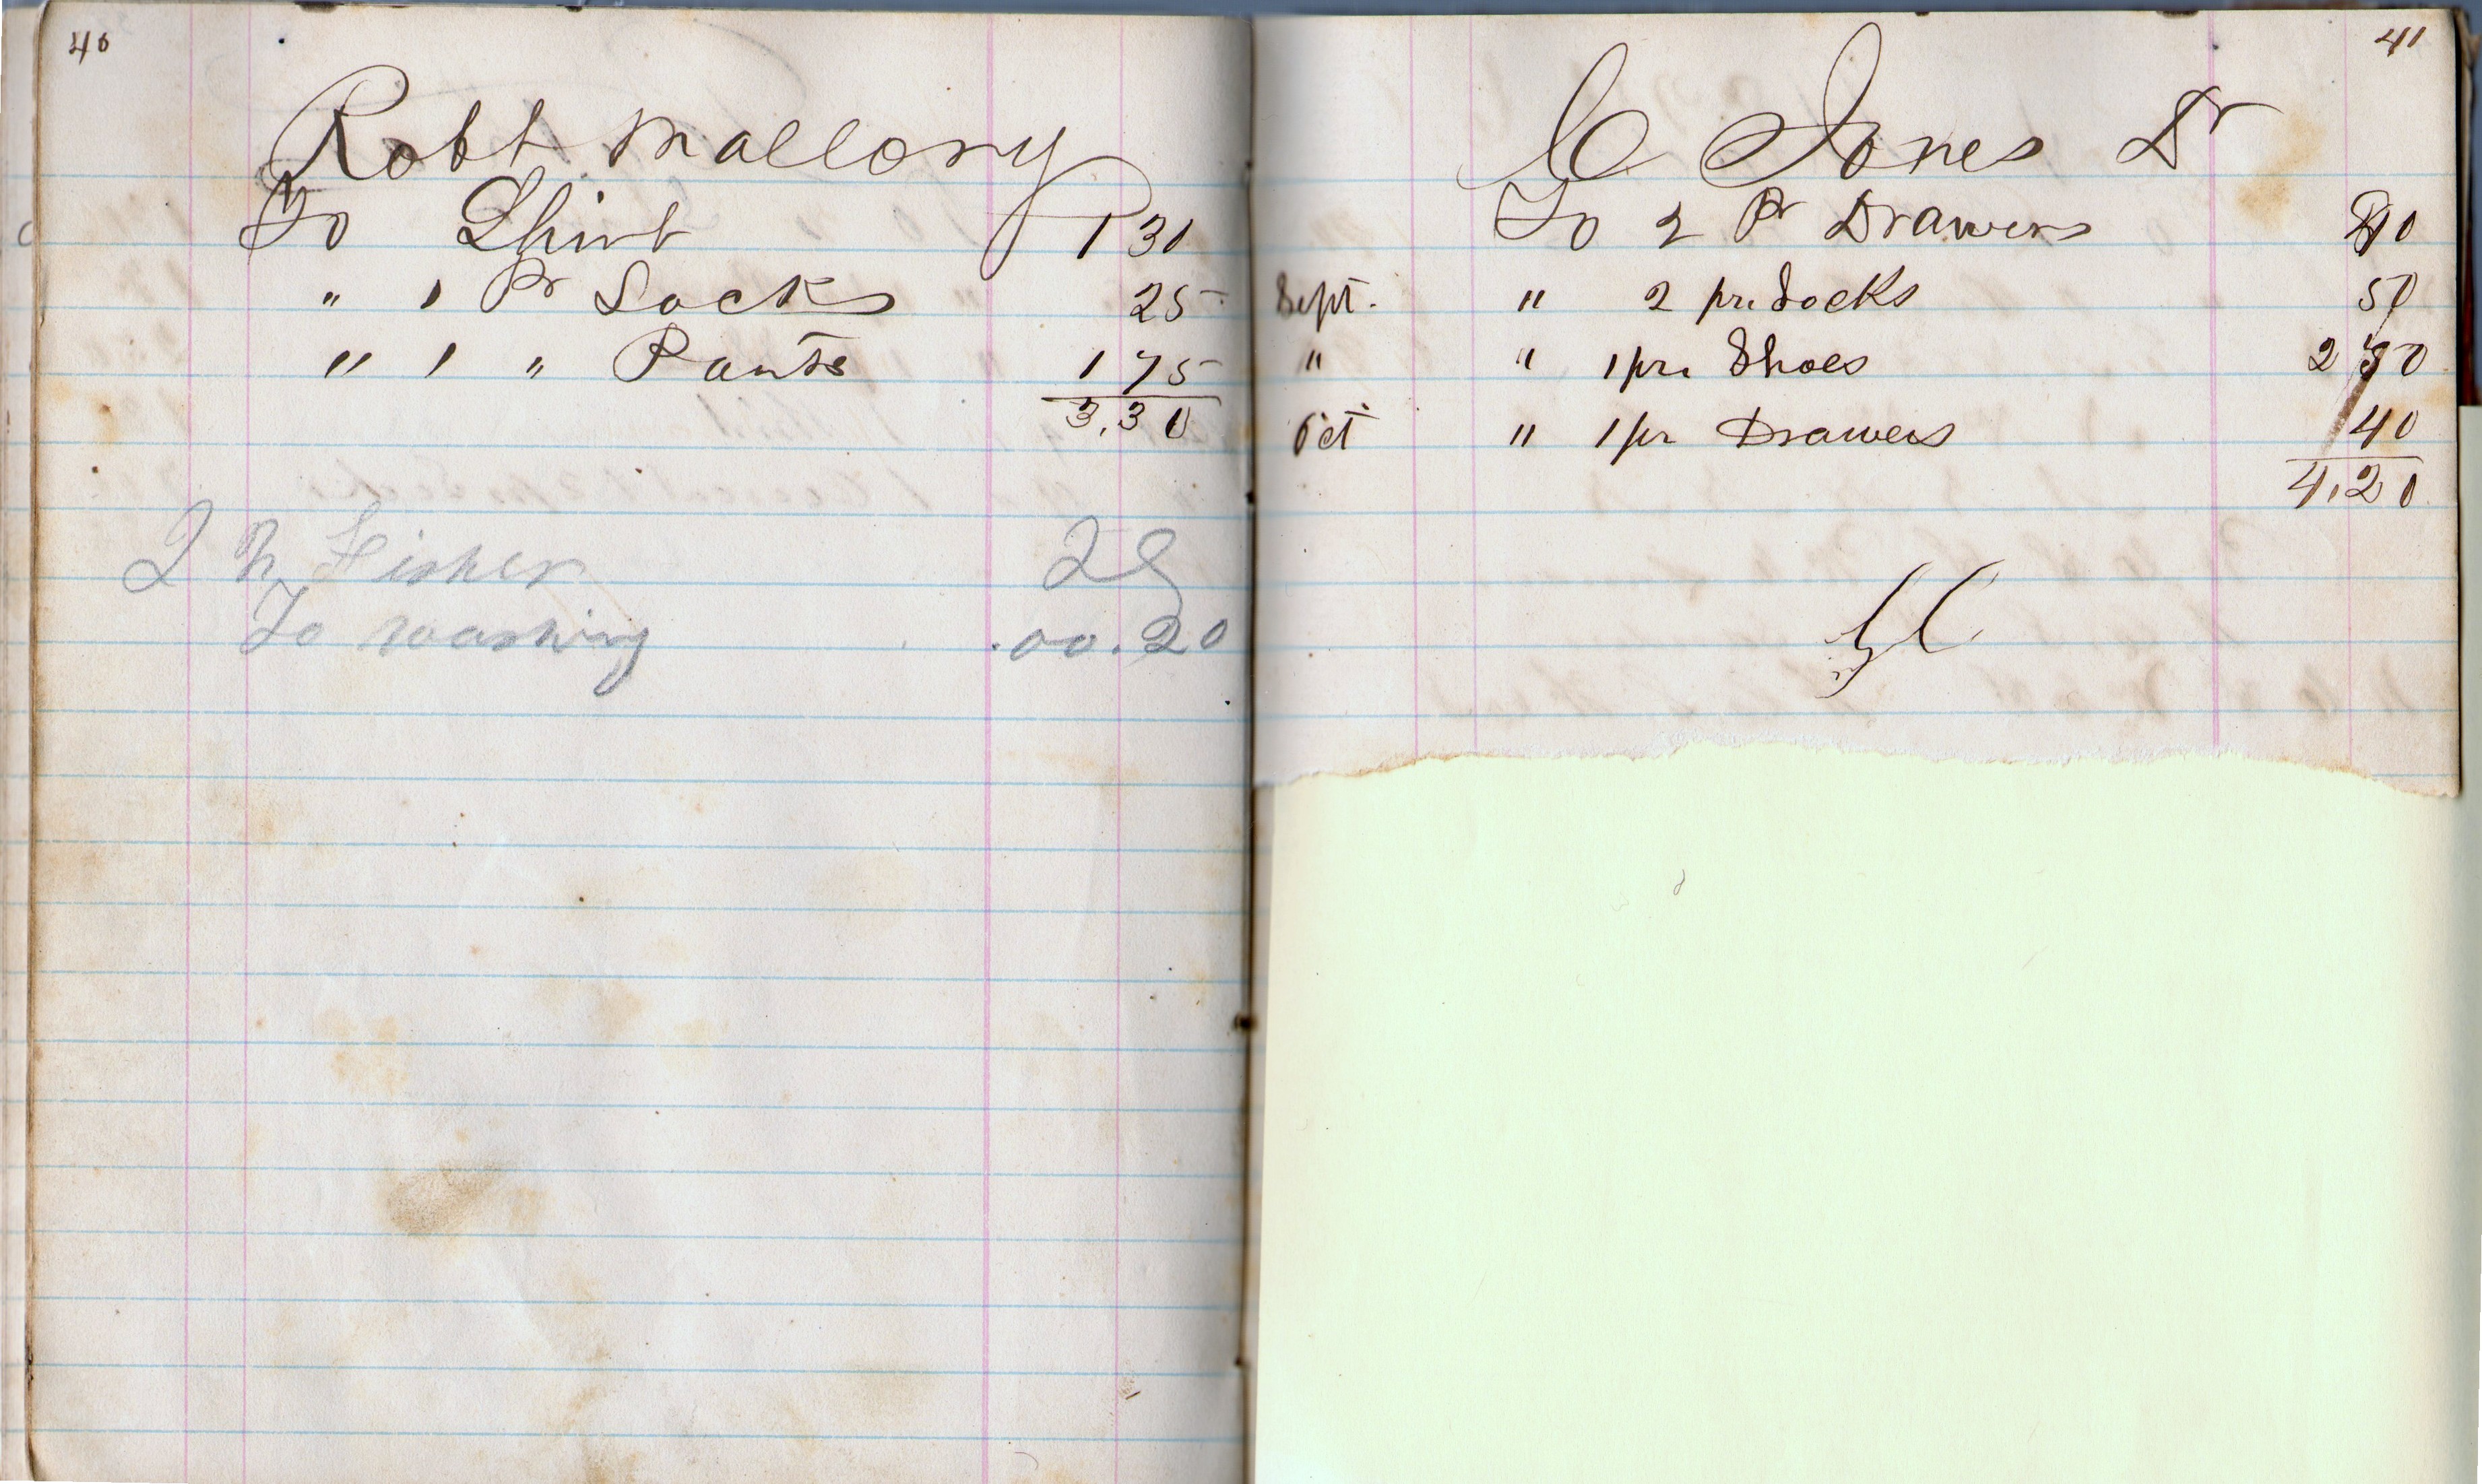 40
Robt Mallory
To Shirt 1 30
" 1 Pr Socks 25
" 1 " Pants 1 75
3.30
Fisher
To washing .00.20
41
C Jones Dr
To 2 Pr Drawers 80
Sept. " 2 pr. Socks 50
" " 1 pr. Shoes 2 50
Oct " 1 pr Drawers 40
4.20